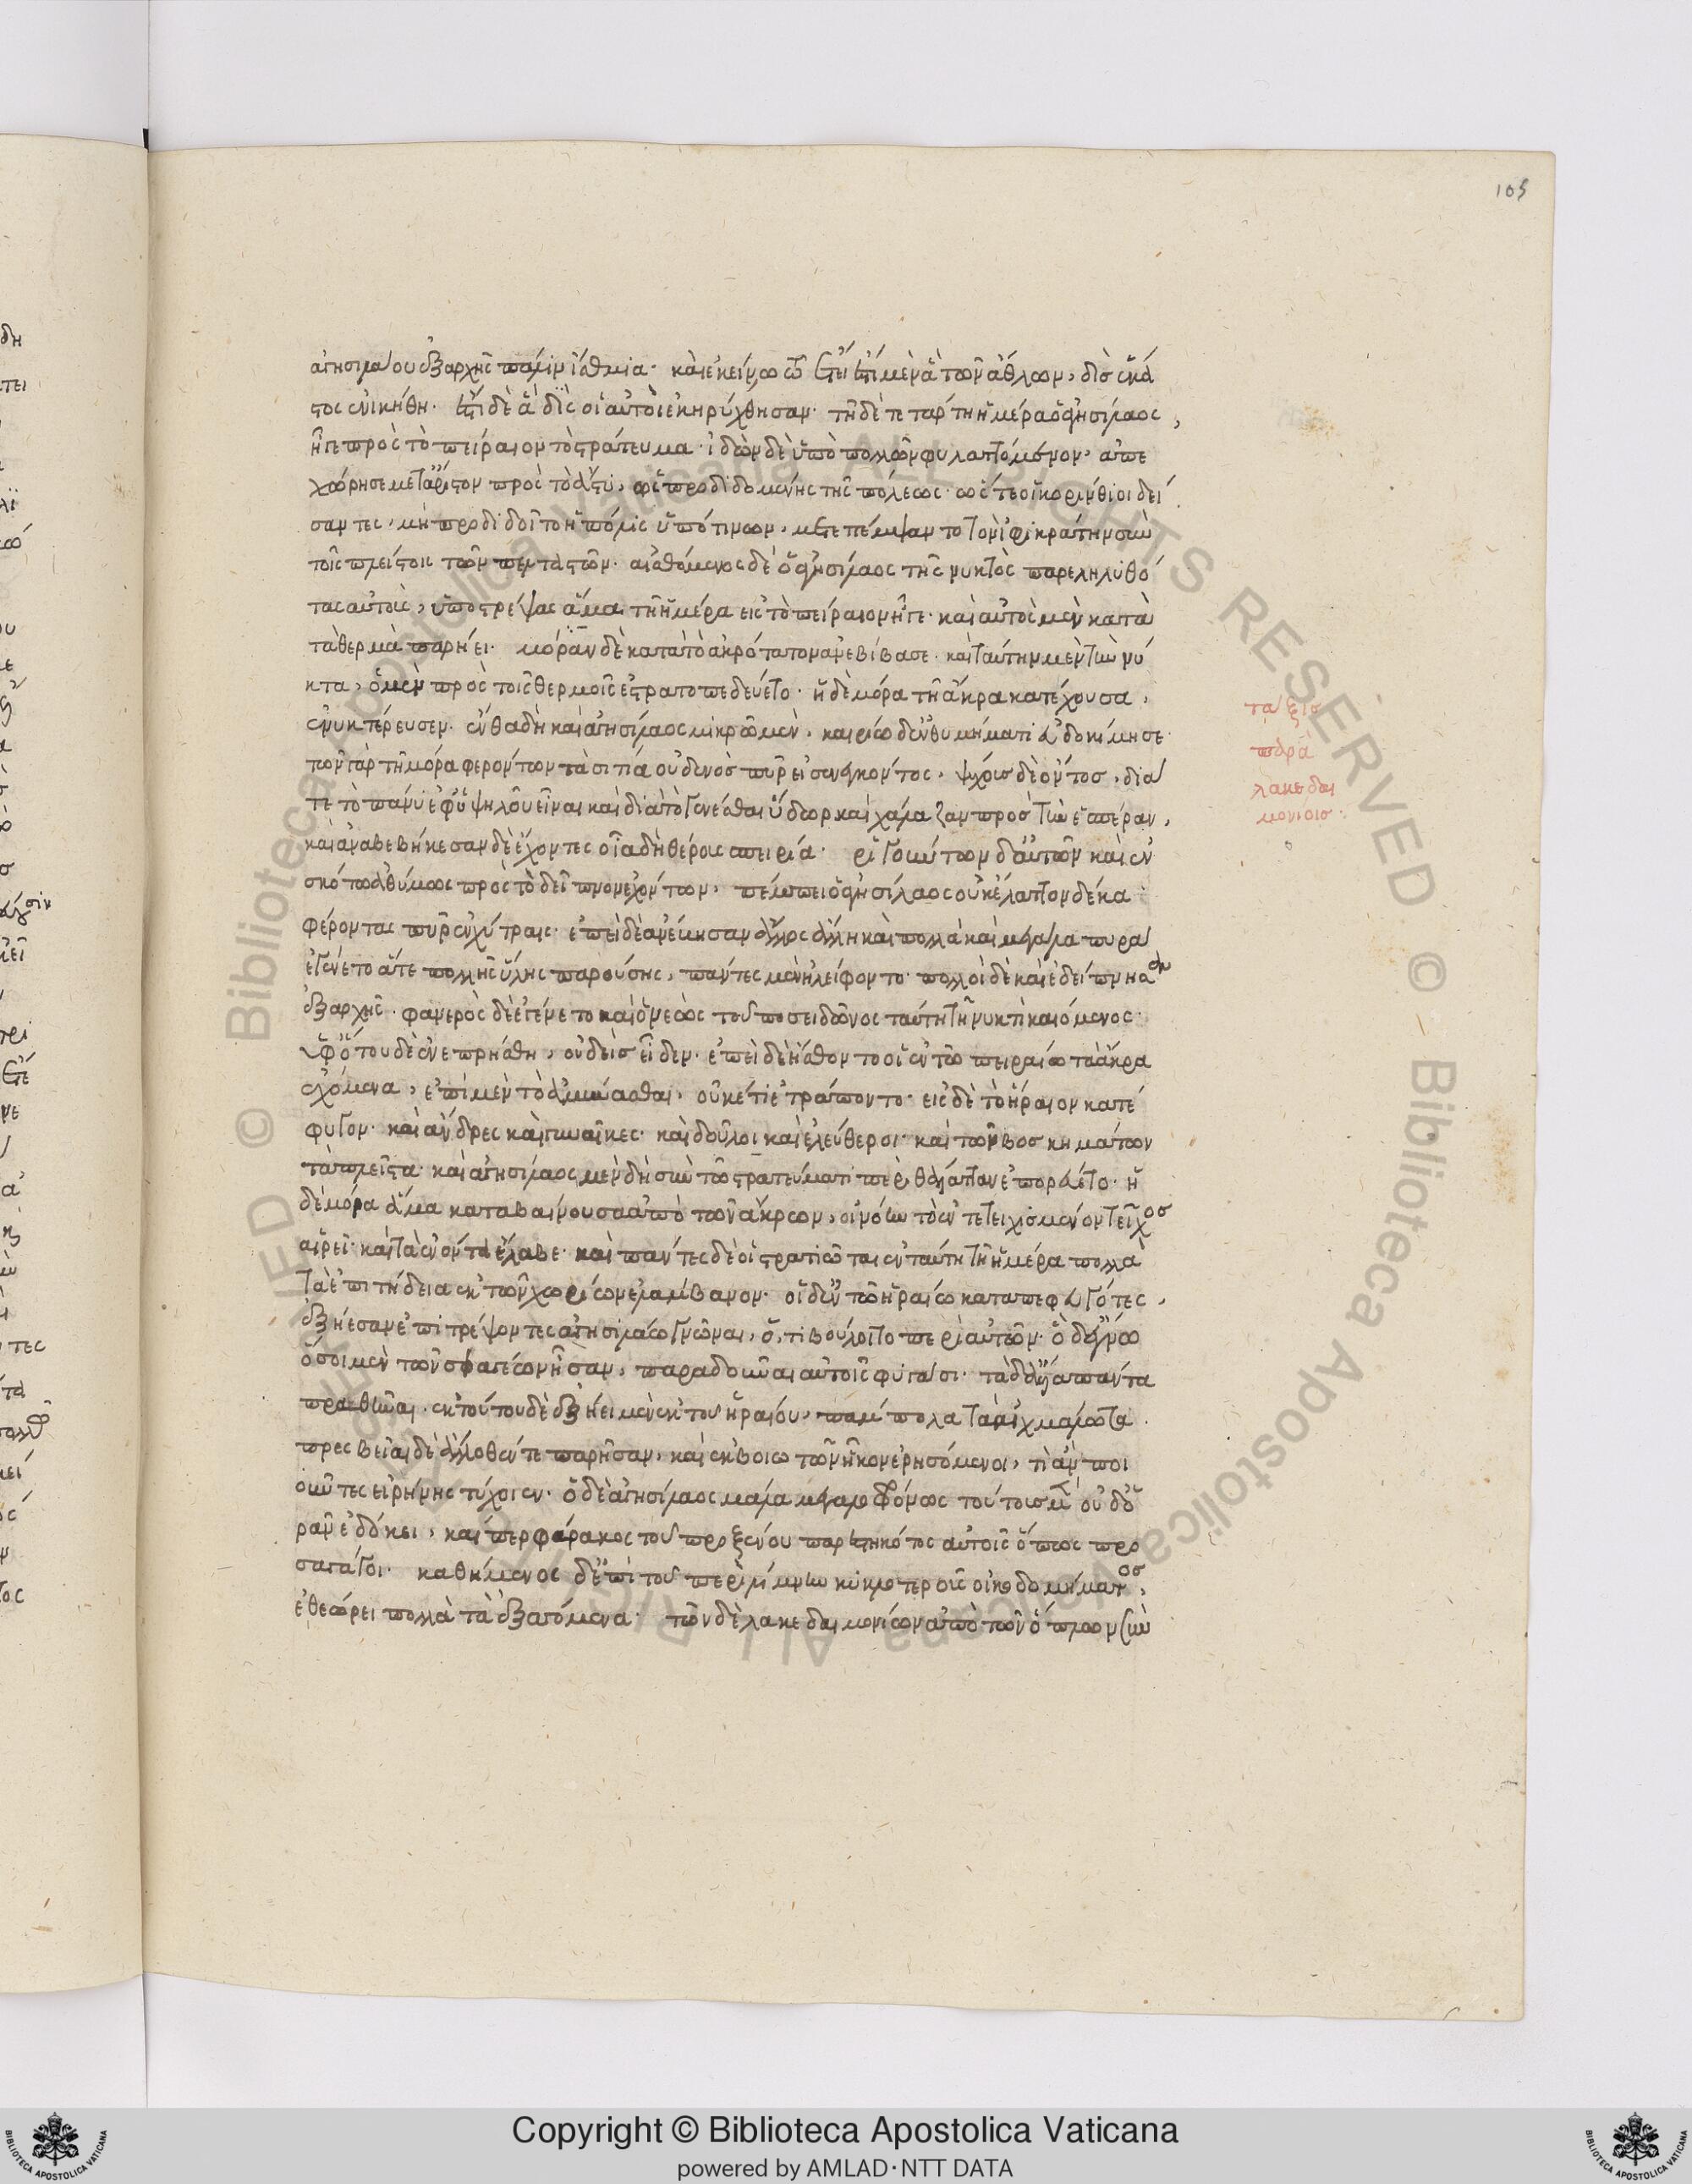 105
ἀγησιλάου ἐξαρχῆς πάλιν ἴσθμια· κἀκείνω τῶ ἔτει ἔστι μὲν ἃ τῶν ἄθλων, δὶς ἕκα
στος ἐνικήθη· ἔστι δὲ ἃ δὶς οἱ αὐτοὶ ἐκηρύχθησαν· τῆ δὲ τετάρτη ἡμέρα ὁ ἀγησίλαος,
ἦγε πρὸς τὸ πείραιον τὸ στράτευμα· ἰδὼν δὲ ὑπὸ πολλῶν φυλαττόμενον, ἀπε
χώρησε μετάριστον πρὸς τὸ ἄστυ, ὡς προδιδομένης τῆς πόλεως· ὥστε οἱ κορίνθιοι δεί
σαντες, μὴ προδιδοῖτο ἡ πόλις ὑπό τινων, μετεπέμψαντο τὸν ἰφικράτην σὺν
τοῖς πλείστοις τῶν πελταστῶν· αἰσθόμενος δὲ ὁ ἀγησίλαος τῆς νυκτὸς παρεληλυθό
τας αὐτοὺς, ὑποστρέψας ἅμα τῆ ἡμέρα εἰς τὸ πείραιον ἦγε· καὶ αὐτὸς μὲν κατὰ
τὰ θερμὰ παρήει· μόραν δὲ κατὰ τὸ ἀκρότατον ἀνεβίβασε· καὶ ταύτην μὲν τὴν νύ
κτα, ὁ μὲν πρὸς τοῖς θερμοῖς ἐστρατοπεδεύετο· ἡ δὲ μόρα τῆ ἄκρα κατέχουσα,
ἐνυκτέρευσεν· ἔνθα δὴ καὶ ἀγησίλαος μικρῶ μὲν, καιρίω δ' ἐνθυμήματι εὐδοκίμησε·
τῶν γὰρ τῆ μόρα φερόντων τὰ σιτία οὐδενὸς πῦρ εἰσενεγκόντος, ψύχους δὲ ὄντος, διά
τε τὸ πάνυ ἐφ' ὑψηλοῦ εἶναι καὶ διὰ τὸ γενέσθαι ὕδωρ καὶ χάλαζαν πρὸς τὴν ἑσπέραν,
καὶ ἀναβεβήκεσαν δὲ ἔχοντες οἷα δὴ θέρους σπειρία· ῥιγούντων δ' αὐτῶν καὶ ἐν
σκότω ἀθύμως πρὸς τὸ δεῖπνον ἐχόντων, πέμπει ὁ ἀγησίλαος οὐκ ἔλαττον δέκα
φέροντας πῦρ ἐν χύτραις· ἐπεὶ δὲ ἀνέβησαν ἄλλος ἄλλη καὶ πολλὰ καὶ μεγάλα πυρὰ
ἐγένετο ἅτε πολλῆς ὕλης παρούσης, πάντες μὲν ἠλείφοντο· πολλοὶ δὲ καὶ ἐδείπνησαν
ἐξαρχῆς· φανερὸς δὲ ἐγένετο καὶ ὁ νεὼς τοῦ ποσειδῶνος ταύτη τῆ νυκτὶ καιόμενος·
ὑφ' ὅτου δὲ ἐνεπρήσθη, οὐδεὶς εἶδεν· ἐπεὶ δὲ ἤσθοντο οἱ ἐν τῶ πειραίω τὰ ἄκρα
ἐχόμενα, ἐπὶ μὲν τὸ ἀμύνασθαι, οὐκέτι ἐτράποντο· εἰς δὲ τὸ ἥραιον κατέ
φυγον· καὶ ἄνδρες καὶ γυναῖκες· καὶ δοῦλοι καὶ ἐλεύθεροι· καὶ τῶν βοσκημάτων
τὰ πλεῖστα· καὶ ἀγησίλαος μὲν δὴ σὺν τῶ στρατεύματι περὶ θάλατταν ἐπορεύετο· ἡ
δὲ μόρα ἅμα καταβαίνουσα ἀπὸ τῶν ἄκρων, οἰνόην τὸ ἐντετειχισμένον τεῖχος
αἱρεῖ· καὶ τὰ ἐνόντα ἔλαβε· καὶ πάντες δὲ οἱ στρατιῶται ἐν ταύτη τῆ ἡμέρα πολλὰ
τὰ ἐπιτήδεια ἐκ τῶν χωρίων ἐλάμβανον· οἱ δ' ἐν τῶ ἡραίω καταπεφευγότες,
ἐξήεσαν ἐπιτρέψοντες ἀγησιλάω γνῶναι, ὅ,τι βούλοιτο περὶ αὐτῶν· ὁ δ' ἔγνω
ὅσοι μὲν τῶν σφαγέων ἦσαν, παραδοῦναι αὐτοῖς φυγάσι· τὰ δ' ἄλλα πάντα
πραθῆναι· ἐκ τούτου δὲ ἐξήει μὲν ἐκ τοῦ ἡραίου, πάμπολα τὰ αἰχμάλωτα·
πρεσβεῖαι δὲ ἄλλοθέν τε παρῆσαν, καὶ ἐκ βοιωτῶν ἧκον ἐρησόμενοι, τὶ ἂν ποι
οῦντες εἰρήνης τύχοιεν· ὁ δὲ ἀγησίλαος μάλα μεγαλοφρόνως τούτους μὲν οὐδ' ὁ
ρᾶν ἐδόκει, καίπερ φάρακος τοῦ προξένου παρεστηκότος αὐτοῖς ὅπως προ
σαγάγοι· καθήμενος δ' ἐπὶ τοῦ περὶ λίμνην κυκλοτεροῦς οἰκοδομήματος,
ἐθεώρει πολλὰ τὰ ἐξαγόμενα· τῶν δὲ λακεδαιμονίων ἀπὸ τῶν ὅπλων σὺν
τάξις
παρὰ
λακεδαι
μονίοις·
Copyright © Biblioteca Apostolica Vaticana
powered by AMLAD·NTT DATA